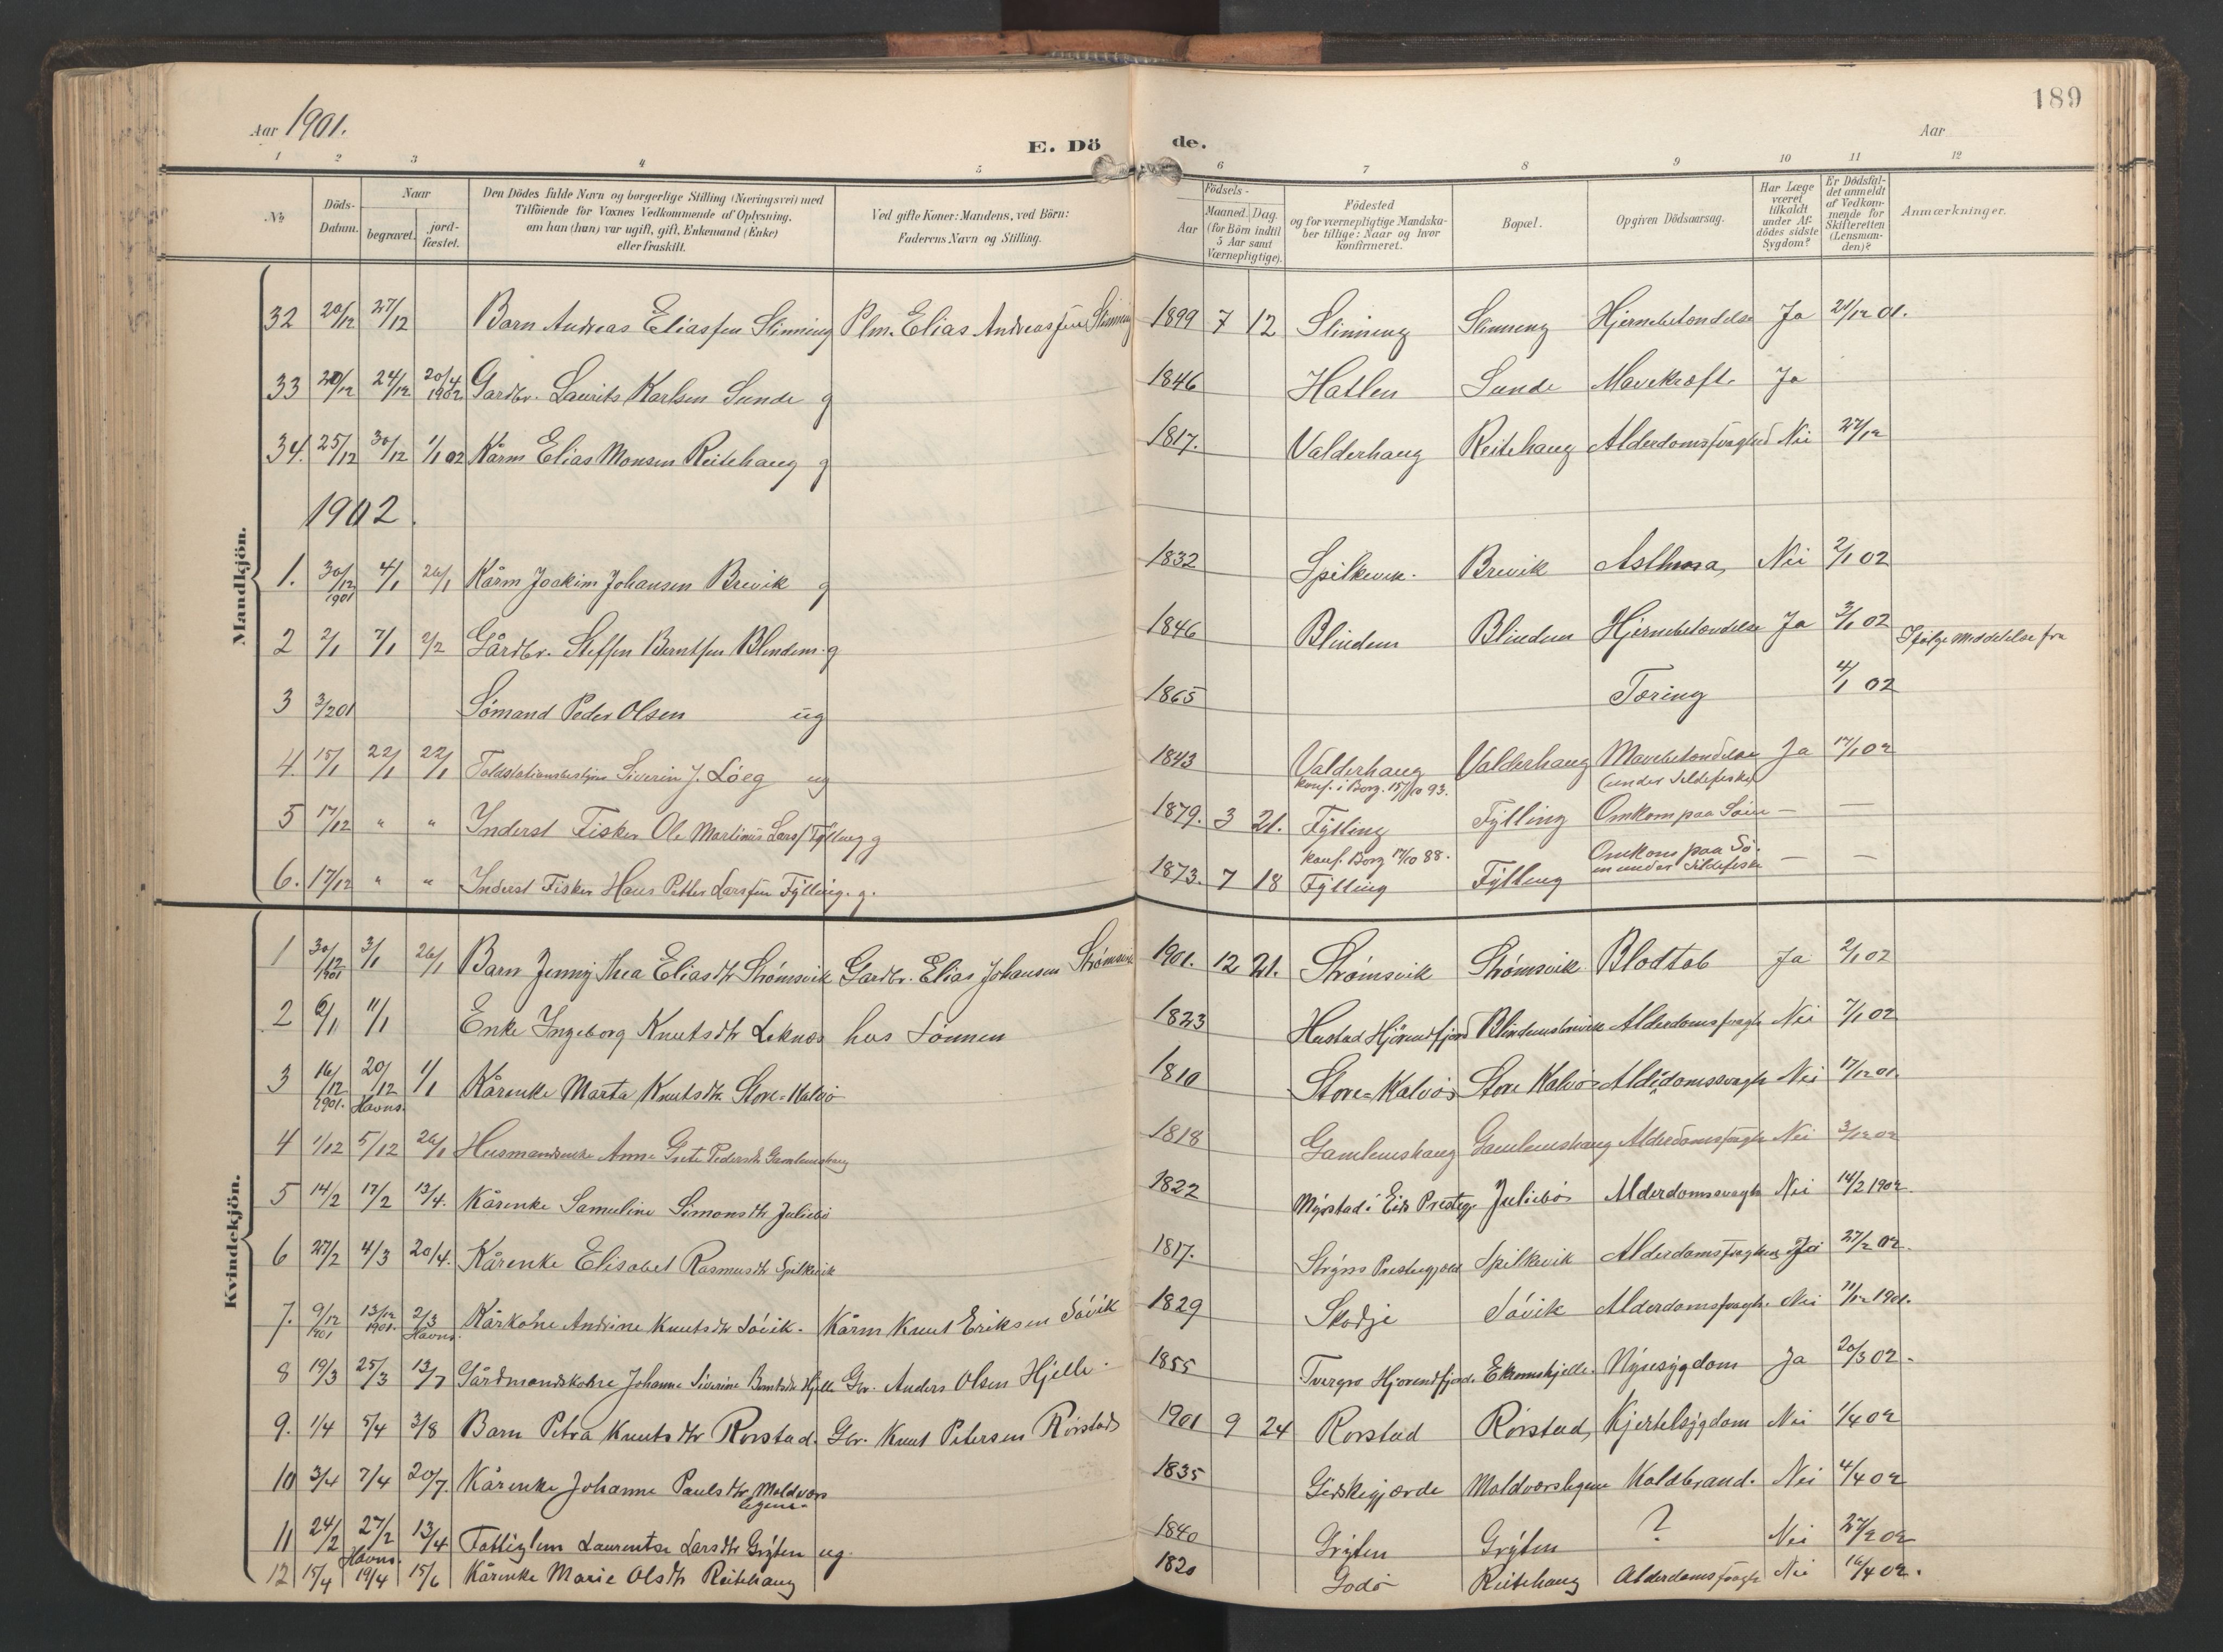 189
Aar 1901.
E. Döde.
Aar
1 2 3 4 5 6 7 8 9 10 11 12
No
Döds-Datum.
Naar
begravet.
jord-fæstet.
Den Dödes fulde Navn og borgerlige Stilling (Næringsvei) med
Tilföiende for Voxnes Vedkommende af Oplysning,
om han (hun) var ugift, gift, Enkemand (Enke)
eller fraskilt.
Ved gifte Koner: Mandens, ved Börn:
Faderens Navn og Stilling.
Födsels-
Aar
Maaned. Dag.
(for Börn indtil
5 Aar samt
Værnepligtige).
Födested
og for værnepligtige Mandska-
ber tillige: Naar og hvor
konfirmeret.
Bopæl.
Opgiven Dödsaarsag.
Har Læge
været
tilkaldt
under Af-
dödes sidste
Sygdom?
Er Dödsfal-
det anmeldt
af Vedkom-
mende for
Skifteretten
(Lensman-
den)?
Anmærkninger.
Mandkjön.
32 20/12 27/12 Barn Andreas Eliassen Slinning Plm. Elias Andreassen Slinning 1899 7 12 Slinning Slinning Hjernebetændelse Ja 21/12 01.
33 20/12 24/12 20/4 1902 Gardbr. Laurits Karlsen Sunde g 1846 Hatlen Sunde Mavekræft. Ja
34. 25/12 30/12 1/1 02 Kårm Elias Monsen Reitehaug g 1817. Valderhaug Reitehaug Alderdomssvaghed Nei 27/12
1902.
1. 30/12 1901 4/1 26/1 Kårm Joakim Johansen Brevik g 1832 Spilkevik. Brevik Asthma, Nei 2/1 02
2 2/1 7/1 2/2 Gårdbr. Steffen Berntsen Blindem. g 1846 Blindem Blindem Hjernebetændelse Ja 3/1 02
3 3/2 01 Sömand Peder Olsen ug 1865 Tæring 4/1 02 Ifölge meddelelse fra
4. 15/1 22/1 22/1 Toldstationsbestyrer Siverin J. Löeg ug 1843 Valderhaug Valderhaug Mavebetændelse Ja 17/1 02
5 17/12 " " Inderst Fisker Ole Martinus Larss. Fylling g 1879. 3 21. konf. i Borg. 15/10 93. Fylling Fylling (under Sildefiske) Omkom paa Söen — —
6. 17/12 " " Inderst Fisker Hans Petter Larssen Fylling. g. 1873. 7 18 konf. Borg 17/10 88. Fylling Fylling Omkom paa Sö-
en under Sildefiske — —
Kvindekjön.
1 30/12 1901 3/1 26/1 Barn Jenny Thea Eliasdtr Strömsvik Gardbr. Elias Johansen Strömsvik 1901. 12 21. Strömsvik Strömsvik Blodtab Ja 2/1 02
2 6/1 11/1 Enke Ingeborg Knutsdtr Leknæs hos Sönnen 1823 Hustad Hjörendfjord Alderdomssvagh Nei 7/1 02
3 16/12 1901. 20/12 Havns. 1/1 Kårenke Marta Knutsdtr. Store-Kalvö 1810 Store-Kalvö Store Kalvö Alderdomssvagh Nei 17/12 01.
4 1/12 5/12 26/1 Husmandsenke Anne Grete Pedersdtr Gamlemshaug 1818 Gamlemshaug Gamlemshaug Alderdomssvagh Nei 3/12 02
5 14/2 17/2 13/4. Kårenke Samuline Simonsdtr Juliebö 1822 Myrstad i Eids Prestegj. Juliebö Alderdomssvagh Nei 14/2 1902.
6 27/2 4/3 20/4. Kårenke Elisabet Rasmusdtr Spilkevik 1817. Stryns Prestegjæld Spilkevik Alderdomssvaghed Nei 27/2 02.
7. 9/12 1901 13/12 1901. 2/3 Havns. Kårkone Andrine Knutsdtr Sövik. Kårm Knut Eriksen Sövik 1829 Skodje Sövik Alderdomssvagh. Nei 11/12 1901.
8 19/3 25/3 13/7 Gårdmandskone Johanne Siverine Berntsdtr Hjelle Gbr. Anders Olsen Hjelle. 1855 Tvergro Hjörendfjord. Ekremshjelle. Nyresygdom Ja 20/3 02.
9. 1/4 5/4 3/8 Barn Petra Knutsdtr Rörstad. Gbr. Knut Petersen Rörstad 1901 9 24 Rörstad Rörstad, Kjertelsygdom Nei 1/4 02
10 3/4 7/4 20/7 Kårenke Johanne Paulsdtr Moldværs
legene. 1835 Giskegjærde Moldværslegene Koldbrand. Nei 4/4 02
11 24/2 27/2 Havns. 13/4 Fattiglem Laurentse Larsdtr Gryten ug. 1840 Gryten Gryten ? Nei 27/2 02
12 15/4 19/4 15/6 Kårenke Marie Olsdtr Reitehaug 1820 Godö Reitehaug Alderdomssvagh Nei 16/4 02.